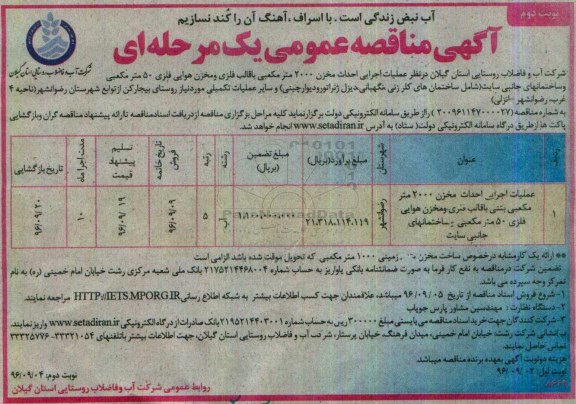 نوبت دوم
آب نبض زندگی است . با اسراف ، آهنگ آن را کُند نسازیم
آگهی مناقصه عمومی یک مرحله ای
شرکت آب و فاضلاب روستایی استان گیلان
شرکت آب و فاضلاب روستایی استان گیلان درنظر عملیات اجرایی احداث مخزن ۲۰۰۰ متر مکعبی باقالب فلزی ومخزن هوایی فلزی ۵۰ متر مکعبی
وساختمانهای جانبی سایت(شامل ساختمان های کلر زنی ،نگهبانی،دیزل ژنراتورودیوارچینی) و سایر عملیات تکمیلی موردنیاز روستای بیجارکن ازتوابع شهرستان رضوانشهر(ناحیه ۴
غرب، رضوانشهر -انزلی)
به شماره مناقصه (۲۰۰۹۶۱۱۴۷۰۰۰۰۲۷) رااز طریق سامانه الکترونیکی دولت برگزارنماید کلیه مراحل برگزاری مناقصه ازدریافت اسنادمناقصه تا ارائه پیشنهاد مناقصه گران وبازگشایی
پاکت ها ازطریق درگاه سامانه الکترونیکی دولت( ستاد) به آدرس www.setadiran.ir انجام خواهد شد.
ردیف
عنوان
شهرستان
مبلغ برآورد(ریال)
مبلغ تضمین (ریال)
رشته
رتبه
تاریخ خاتمه فروش
تسلیم پیشنهاد قیمت
مدت اجرا ماه
تاریخ بازگشایی
۱
عملیات اجرایی احداث مخزن ۲۰۰۰ متر
مکعبی بتنی باقالب فلزی ومخزن هوایی
فلزی ۵۰ متر مکعبی و ساختمانهای
جانبی سایت
رضوانشهر
۲۱,۳۱۸,۱۱۴,۱۱۹
آب
۵
۹۶/۰۹/۰۹
۹۶/۰۹/۱۹
۱۰
۹۶/۰۹/۲۰
** ارائه یک کارمشابه درخصوص ساخت مخزن زمینی ۱۰۰۰ متر مکعبی که تحویل موقت شده باشد الزامی است
تضمین شرکت درمناقصه به نفع کار فرما به صورت ضمانتنامه بانکی یاواریز به حساب شماره ۲۱۷۵۲۱۴۴۶۸۰۰۴ بانک ملی شعبه مرکزی رشت خیابان امام خمینی (ره) به نام
تمرکز وجه سپرده می باشد.
۱- شروع فروش اسناد مناقصه از تاریخ ۹۶/۰۹/۰۵ میباشد، علاقمندان جهت کسب اطلاعات بیشتر به شبکه اطلاع رسانی HTTP//IETS.MPORG.IR مراجعه نمایند.
۲- دستگاه نظارت : مهندسین مشاور پارس جویاب
۳- شرکت کنندگان جهت خرید اسناد مناقصه می بایستی مبلغ ۳۰۰۰۰۰ ریال به حساب شماره ۲۱۹۵۲۱۴۴۰۳۰۰۱ بانک صادرات از درگاه الکترونیکی www.setadiran.ir واریز نمایند.
نشانی شرکت: رشت، خیابان امام خمینی، میدان فرهنگ، خیابان پرستار، شرکت آب و فاضلاب روستایی استان گیلان، جهت اطلاعات بیشتر باتلفنهای ۳۳۳۲۱۰۵۴-۳۳۳۲۵۷۷۶
تماس حاصل نمایند.
هزینه دونوبت آگهی بعهده برنده مناقصه میباشد.
نوبت دوم: ۹۶/۰۹/۰۴
روابط عمومی شرکت آب وفاضلاب روستایی استان گیلان